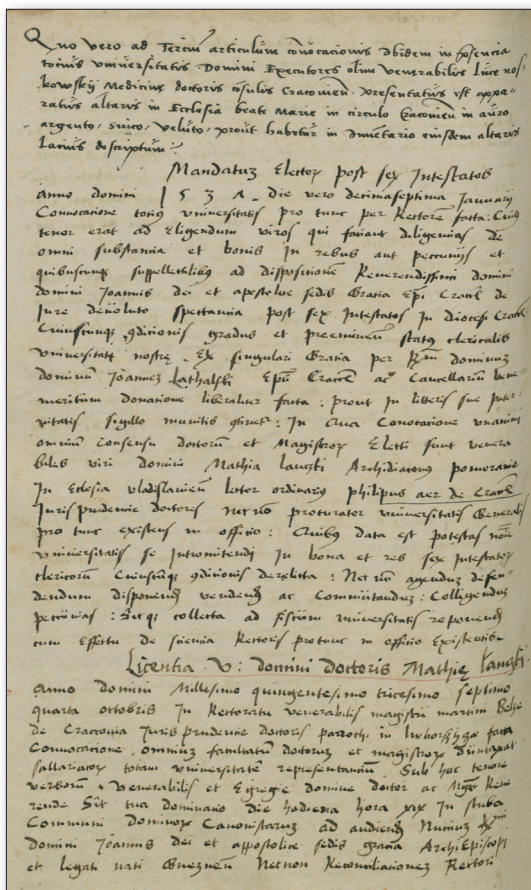 Quo vero ad Tercium articulum convocacionis Ibidem in presencia
tocius universitatis Domini Executores olim venerabilis Luce nos
kowskij Medicine doctoris cosulis Cracovien presentatus est appa
ratus altaris in Ecclesia beate Marie in circulo Cracovien in auro
argento, serico, veluto, prout habetur in Inventario eiusdem altaris
lacius descriptum
Mandatum Elector post sex Intestatos
anno domini 1 5 3 die vero decimaseptima January
Convocacione totius universitatis pro tunc per Rectore facta: Cuius
tenor erat ad Eligendum viros qui faciant diligencias de
omni substantia et bonis In rebus aut peccunijs et
quibuscunq suppellectilibus ad dispositione Reverendissimi domini
domini Joannis dei et apostolice sedis Gratia Epi Cracovie de
Jure devoluto spectancia post sex Intestatos In diocesi Cracovie
Cuiuscunq condicionis gradus et preeminen status clericalis
universitati nostre. Ex singulari Gratia per dominum
dominum Joannez Lathalski Epum Cracovie ac Cancellarium bene
meritum donatione liberaliter facta: prout in litteris sue
vitatis sigillo munitis: In Qua Convocatione unanimi
omnium consensu doctorum et Magistrorum Electi sunt venera
biles viri domini Mathia Archidiaconus pomoranie
In Eclesia vladislavien lector ordinarius philipus de Cracovie
Jurisprudencie doctores necnon procurator universitatis Generalis
pro tunc existens in officio: Quibus data est potestas noie
universitatis se Intromittendi In bona et res sex Intestatorum
clericorum Cuiuscunq condicionis derelicta: Nec non agendum defen
dendum disponendi vendendi ac Commutandum: Colligendum
peccunias: Sicq collecta ad fiscum universitatis reponendi
cum Effectu de sciencia Rectoris pro tunc in officio Existentibus
Licentia V: domini doctoris Mathie
Anno domini Millesimo quingentesimo tricesimo septimo
quarta octobris In Rectoratu venerabilis magistri martini
de Cracovia Juris prudencie doctoris parochi in facta
Convocacione omnium facultatum doctorum et magistrorum
sallariatorum totam universitatem representancium Sub hoc tenore
verborum Venerabilis et Egregie domine doctor ac
rende Sit tua dominacio die hodierna hora XIX In stuba
Communi dominorum Canonistarum ad audiendum Nuncium
domini Joannis dei et appostolice sedis gracia ArchiEpiscopi
et legati nati Gneznen Necnon Reconciliacionez Rectori